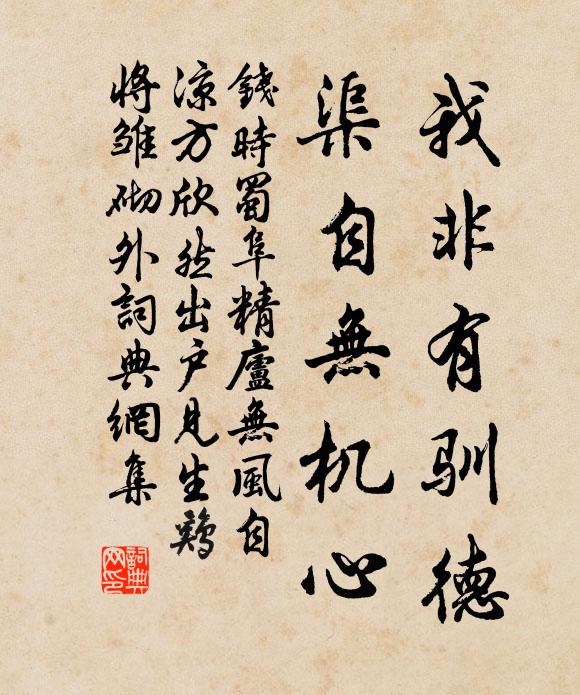 我非有驯德
渠自無机心
錢時蜀阜精廬無風自
涼方欣然出户見生鷄
將雛砌外詞典網集
詞典
网印